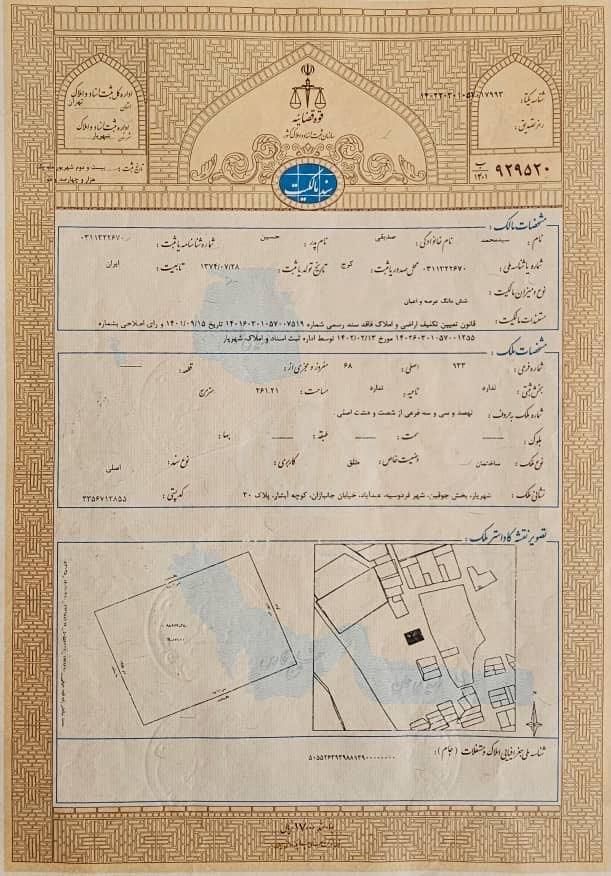 قوه قضائیه
سازمان ثبت اسناد و املاک کشور
سند مالکیت
اداره کل ثبت اسناد و املاک
استان تهران
اداره ثبت اسناد و املاک
شهریار
تاریخ ثبت : بیست و دوم شهریور ماه یک
هزار و چهارصد و دو
شناسه یکتا :
رمز تصدیق :
ب ۱۴۰۱ ۹۲۹۵۲۰
مشخصات مالک :
نام : سیدمحمد نام خانوادگی : صدیقی نام پدر : حسین شماره شناسنامه یا ثبت :
شماره یا شناسه ملی : ۰۳۱۱۳۲۲۶۷۰ محل صدور یا ثبت : کرج تاریخ تولد یا ثبت : ۱۳۷۴/۰۷/۲۸ تابعیت : ایران
نوع و میزان مالکیت : شش دانگ عرصه و اعیان
مستندات مالکیت : قانون تعیین تکلیف اراضی و املاک فاقد سند رسمی شماره ۱۴۰۱۶۰۳۰۱۰۵۷۰۰۷۵۱۹ تاریخ ۱۴۰۱/۰۹/۱۵ و رای اصلاحی بشماره
۱۴۰۲۶۰۳۰۱۰۵۷۰۰۱۲۵۵ مورخ ۱۴۰۲/۰۲/۱۳ توسط اداره ثبت اسناد و املاک شهریار
مشخصات ملک :
شماره فرعی : ۹۳۳ اصلی : ۶۸ مفروز و مجزی از : قطعه :
بخش ثبتی : ندارد ناحیه : ندارد مساحت : ۲۶۱.۲۱ مترمربع
شماره ملک به حروف : نهصد و سی و سه فرعی از شصت و هشت اصلی .
بلوک : سمت : طبقه : بها :
نوع ملک : ساختمان وضعیت خاص : مطلق کاربری : نوع سند : اصلی
نشانی ملک : شهریار، بخش جوقین، شهر فردوسیه، خیابان جانبازان، کوچه آبشار، پلاک ۳۰ کد پستی : ۳۳۵۶۷۱۳۸۵۵
تصویر نقشه کاداستر ملک :
شناسه ملی جغرافیایی املاک و مستغلات (جام) :
ریال